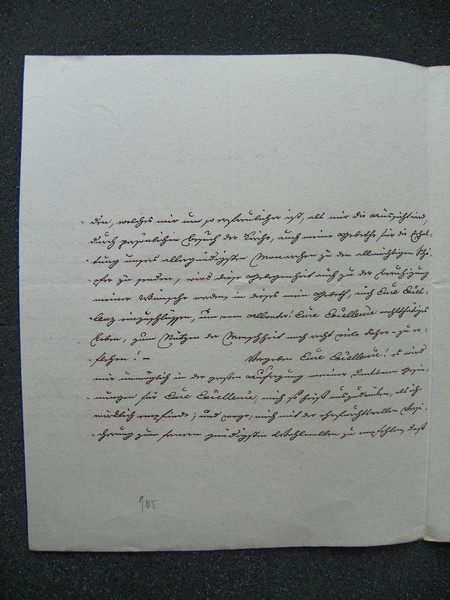 den, welches mir um so erfreulicher ist, als mir die Aussicht wird,
durch persönlichen Besuch der Kirche, auch meine Gebethe für die Erhal-
tung unsers allergnädigsten Monarchen zu den allmächtigen Schö-
pfer zu senden, wird diese Gelegenheit auch zu der Beruhigung
meiner Wünsche werden in dieses mein Gebeth, auch Eure Excel-
lenz einzuschließen, um von Eure Excellenz
Leben, zum Nutzen der Menschheit noch recht viele Jahre zu er-
flehen! — Vergeben Eure Excellenz! es wird
mir unmöglich in der großen Aufregung meiner dankbaren Gesin-
nungen für Eure Excellenz, mich so auszudrücken, als ich
wirklich empfinde; und wage, mich mit der ehrfurchtsvollen Versi-
cherung zum fernern gnädigsten Wohlwollen zu empfehlen, daß
905